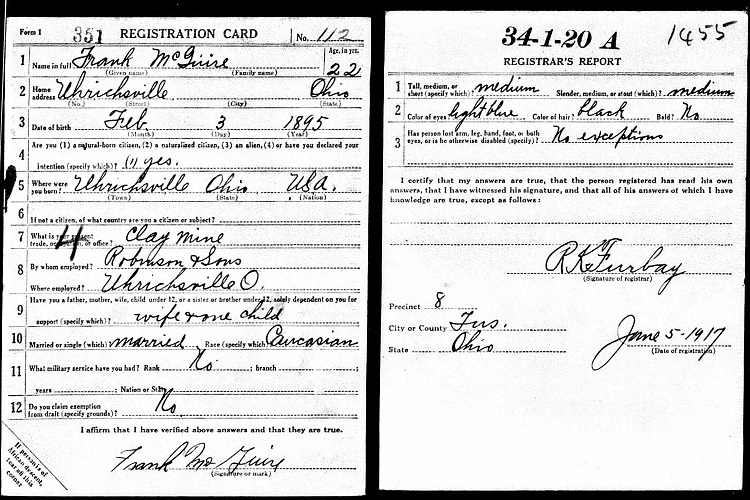 Form 1 351 REGISTRATION CARD No. 112
1 Name in full Frank McGuire Age, in yrs. 22
(Given name) (Family name)
2 Home address Uhrichsville Ohio
(No.) (Street) (City) (State)
3 Date of birth Feb. 3 1895
(Month) (Day) (Year)
4 Are you (1) a natural-born citizen, (2) a naturalized citizen, (3) an alien, (4) or have you declared your
intention (specify which)? (1) yes.
5 Where were you born? Uhrichsville Ohio USA.
(Town) (State) (Nation)
6 If not a citizen, of what country are you a citizen or subject?
7 What is your present trade, occupation, or office? Clay Mine
4
8 By whom employed? Robinson & Sons
Where employed? Uhrichsville O.
9 Have you a father, mother, wife, child under 12, or a sister or brother under 12, solely dependent on you for
support (specify which)? wife & one child
10 Married or single (which) married Race (specify which) Caucasian
11 What military service have you had? Rank No ; branch ;
years ; Nation or State
12 Do you claim exemption from draft (specify grounds)? No
I affirm that I have verified above answers and that they are true.
Frank McGuire
(Signature or mark)
If persons of
African descent,
tear off this
corner
34-1-20 A 1455
REGISTRAR'S REPORT
1 Tall, medium, or short (specify which)? medium Slender, medium, or stout (which)? medium
2 Color of eyes light blue Color of hair? black Bald? No
3 Has person lost arm, leg, hand, foot, or both
eyes, or is he otherwise disabled (specify)? No exceptions
I certify that my answers are true, that the person registered has read his own
answers, that I have witnessed his signature, and that all of his answers of which I have
knowledge are true, except as follows:
RK Furbay
(Signature of registrar)
Precinct 8
City or County Tus.
State Ohio
June 5-1917
(Date of registration)